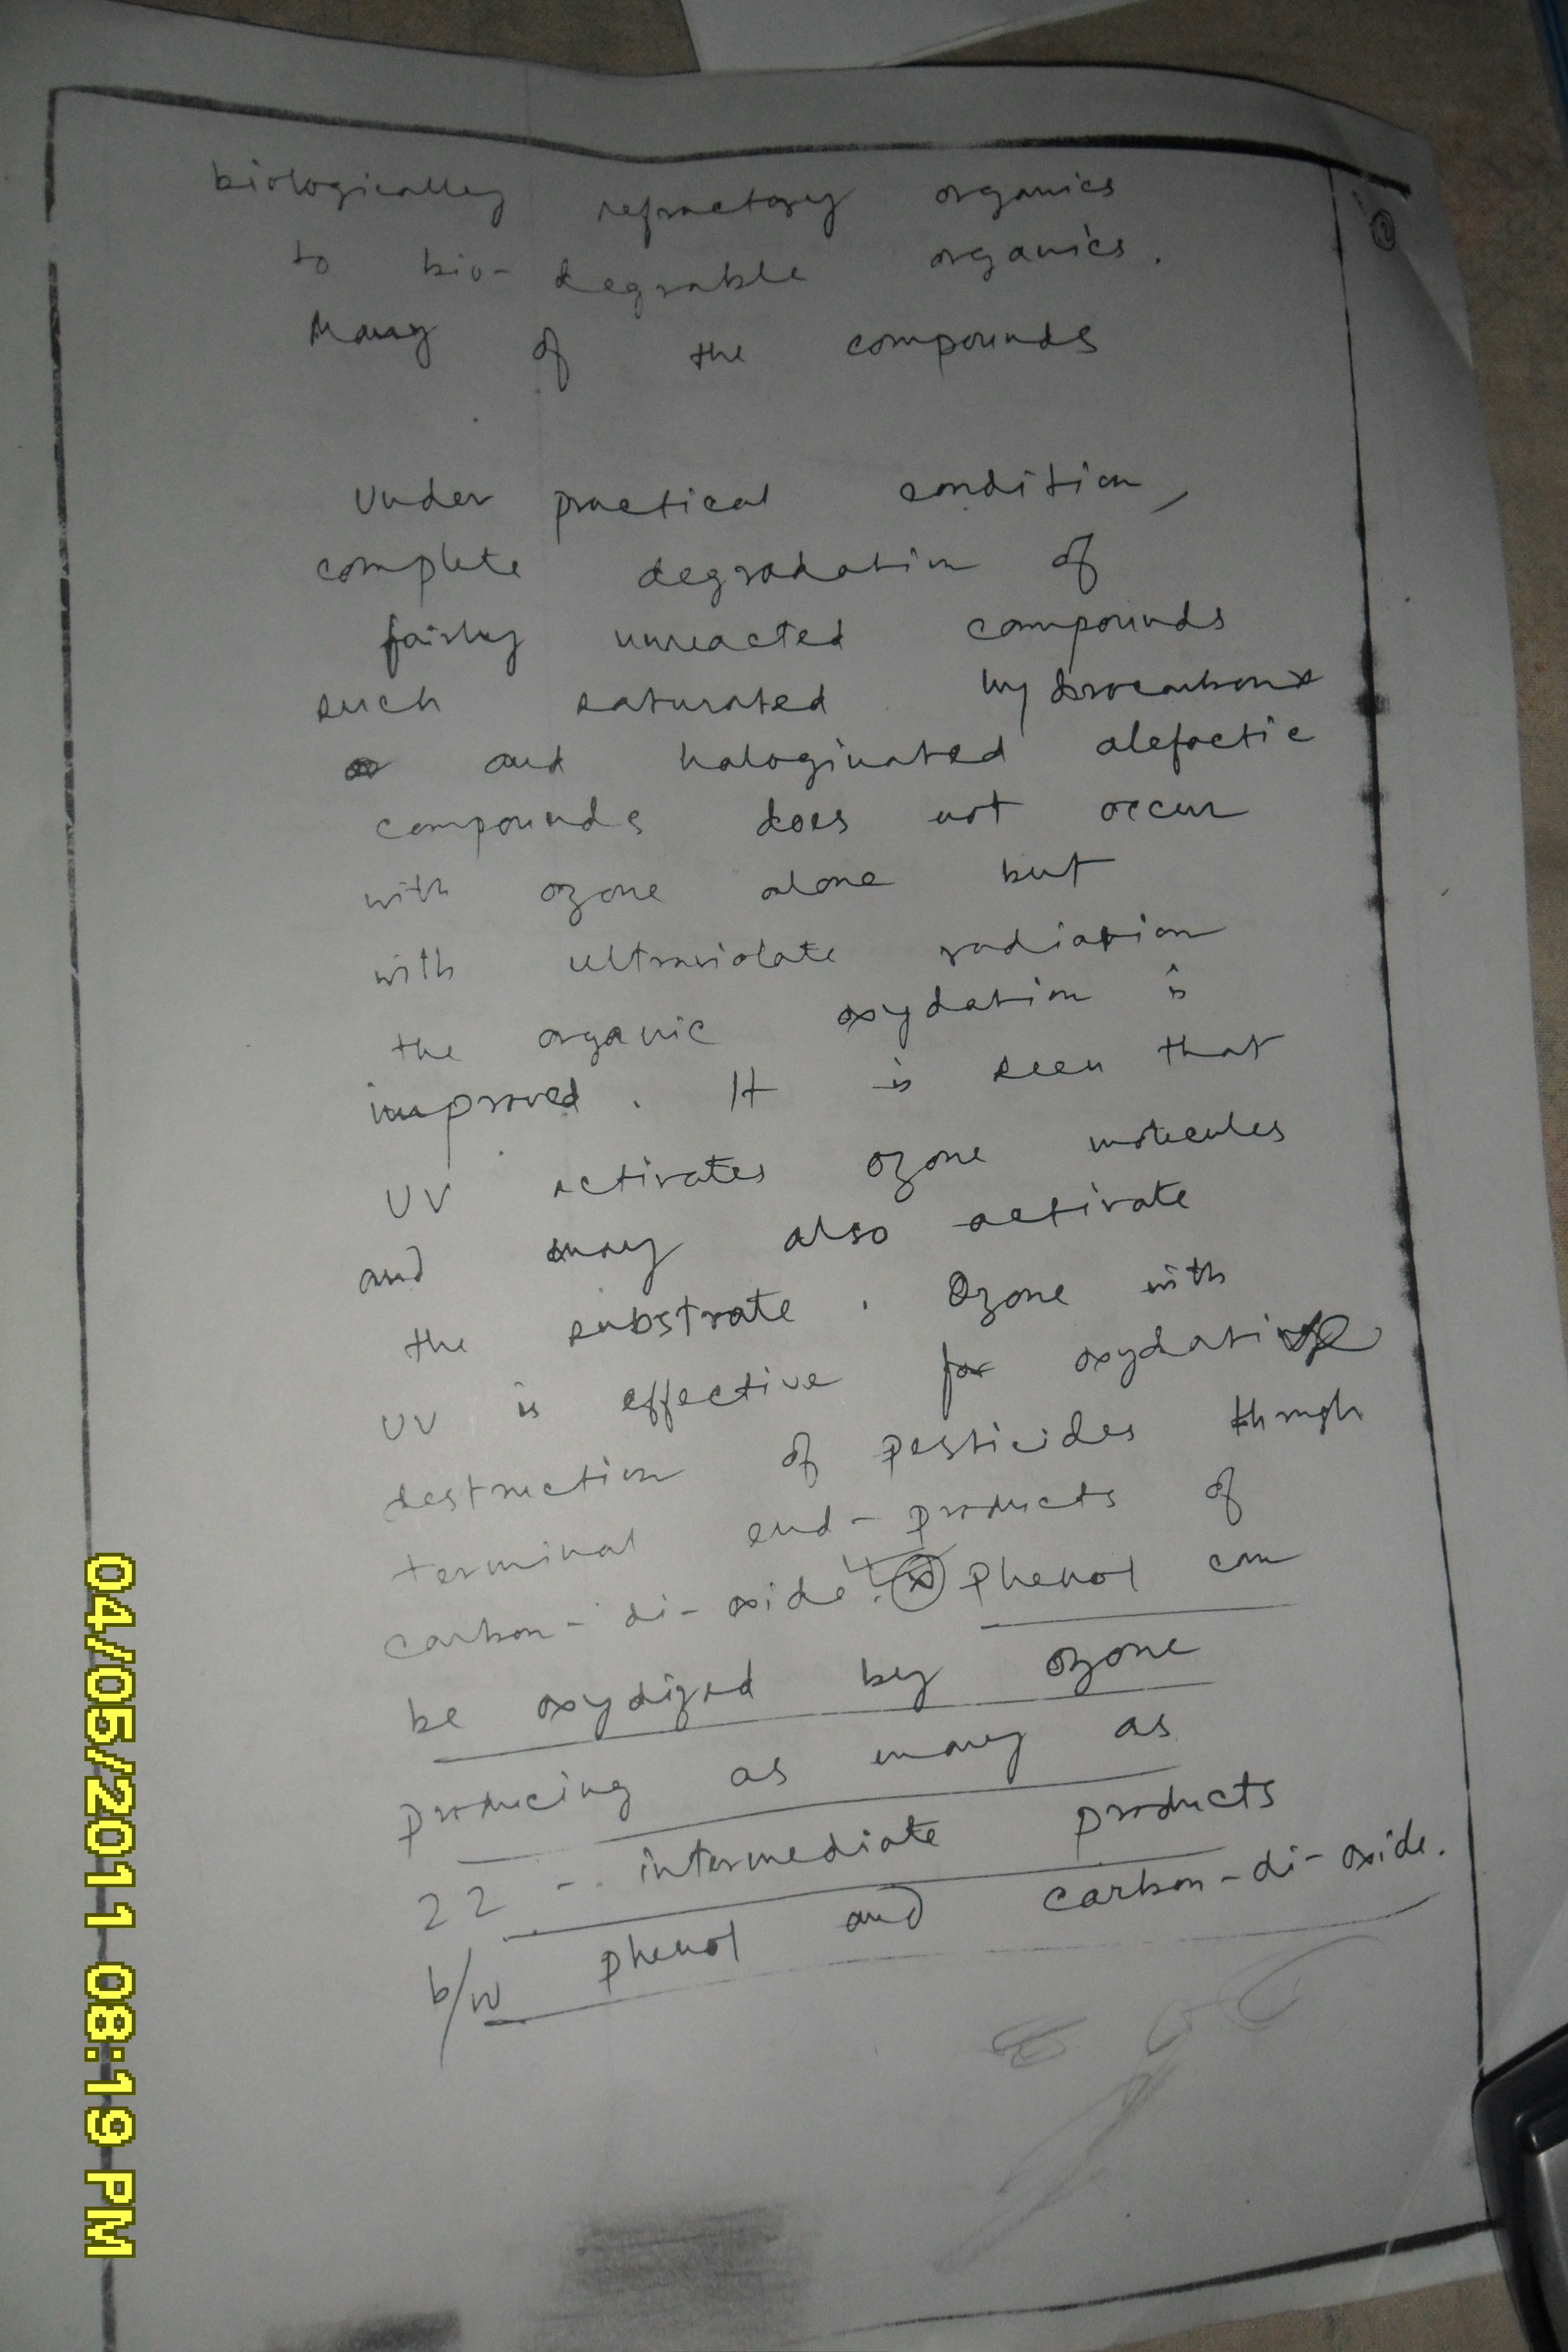 biologically refractory organics
to bio-degrable organics.
Many of the compounds
Under practical condition,
complete degradation of
fairly unreacted compounds
such saturated hydrocarbons
and haloginated alefactic
compounds does not occur
with ozone alone but
with ultraviolate radiation
the organic oxydation is
improved. It is seen that
UV activates ozone molecules
and may also activate
the substrate. Ozone with
UV is effective for oxydative
destruction of pesticides through
terminal end-products of
carbon-di-oxide. phenol can
be oxydized by ozone
producing as many as
22 - intermediate products
b/w phenol and carbon-di-oxide.
04/05/2011 08:19 PM